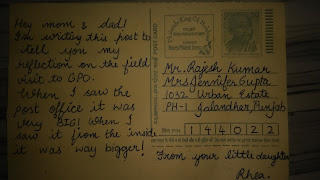 Hey mom & dad!
I'm writing this post to
tell you my
reflection on the field
visit to GPO.
When I saw the
post office it was
very BIG! When I
saw it from the inside
it was way bigger!
POST CARD
Mr. Rajesh Kumar
Mrs Jennifer Gupta
1032 Urban Estate
PH-1 Jalandhar, Punjab
144022
From your little daughter
Rhea.